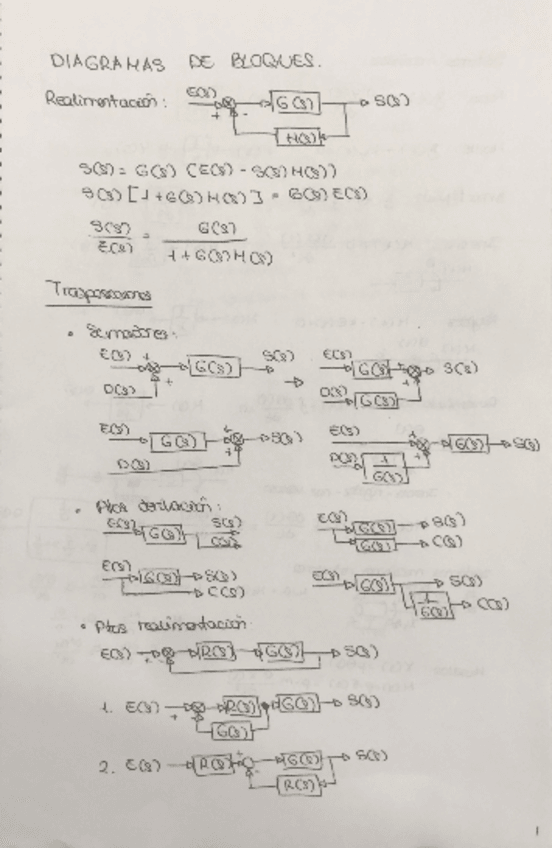 DIAGRAMAS DE BLOQUES.
Realimentación: E(s) + - G(s) S(s)
H(s)
S(s) = G(s) (E(s) - S(s) H(s))
S(s) [1 + G(s) H(s)] = G(s) E(s)
S(s) / E(s) = G(s) / 1 + G(s) H(s)
• Sumadores:
E(s) + + G(s) S(s) → E(s) G(s) S(s)
D(s) D(s) G(s)
E(s) G(s) + + S(s) E(s) + + G(s) S(s)
D(s) D(s) 1/G(s)
• Ptos derivación:
E(s) G(s) S(s) C(s) E(s) G(s) S(s)
G(s) C(s)
E(s) G(s) S(s) E(s) G(s) S(s)
C(s) 1/G(s) C(s)
• Ptos realimentación
E(s) + - R(s) G(s) S(s)
1. E(s) + - R(s) G(s) S(s)
G(s)
2. E(s) R(s) + - G(s) S(s)
R(s)
1